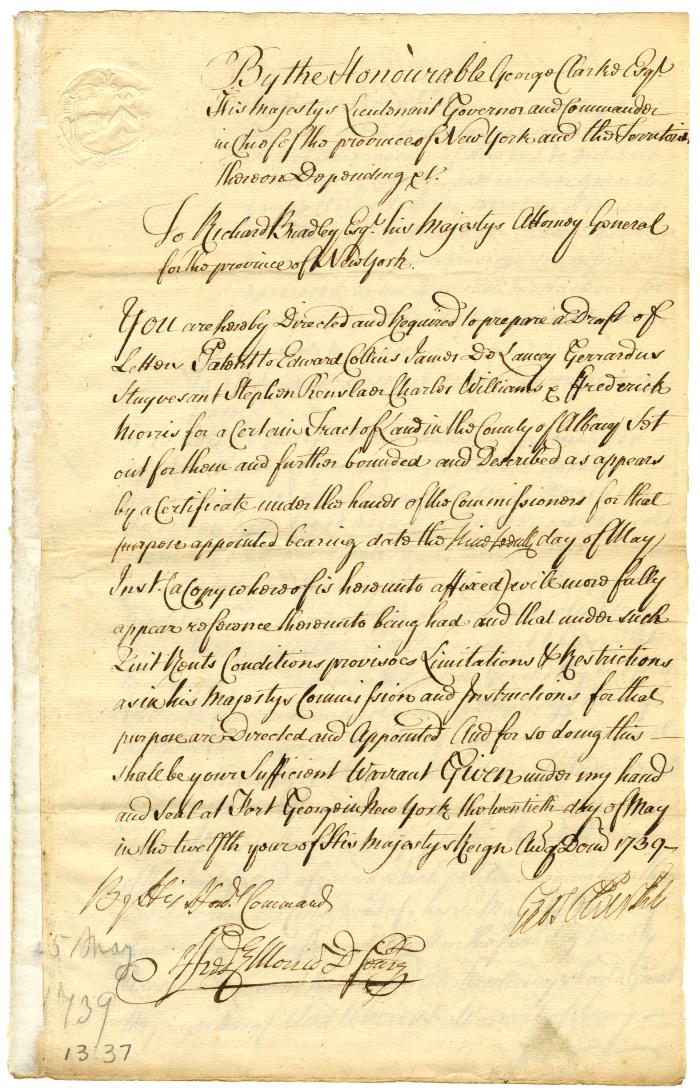 By the Honourable George Clarke Esqr.
His majestys Lieutenant Governor and Commander
in Chief of the province of New York and the Territories
thereon Depending &c.
To Richard Bradley Esqr. his Majestys Attorney General
for the province of New York.
You are hereby Directed and Required to prepare a Draft of
Letters Patent to Edward Collins James De Lancey Gerrardus
Stuyvesant Stephen Renslaer Charles Williams & ffrederick
Morris for a Certain Tract of Land in the County of Albany Set
out for them and further bounded and Described as appears
by a Certificate under the hands of the Commissioners for that
purpose appointed bearing date the Nineteenth day of May
Inst. (a Copy whereof is hereunto affixed) will more fully
appear reference thereunto being had and that under such
Quit Rents Conditions provisoes Limitations & Restrictions
as in his Majestys Commission and Instructions for that
purpose are Directed and Appointed And for so doing this
shall be your Sufficient Warrant Given under my hand
and Seal at Fort George in New York the twentieth day of May
in the twelfth year of His Majestys Reign Anoq Domi 1739
By His Honrs. Command
Geo Clarke
ffred Morris D Secry
5 May
1739
13.37